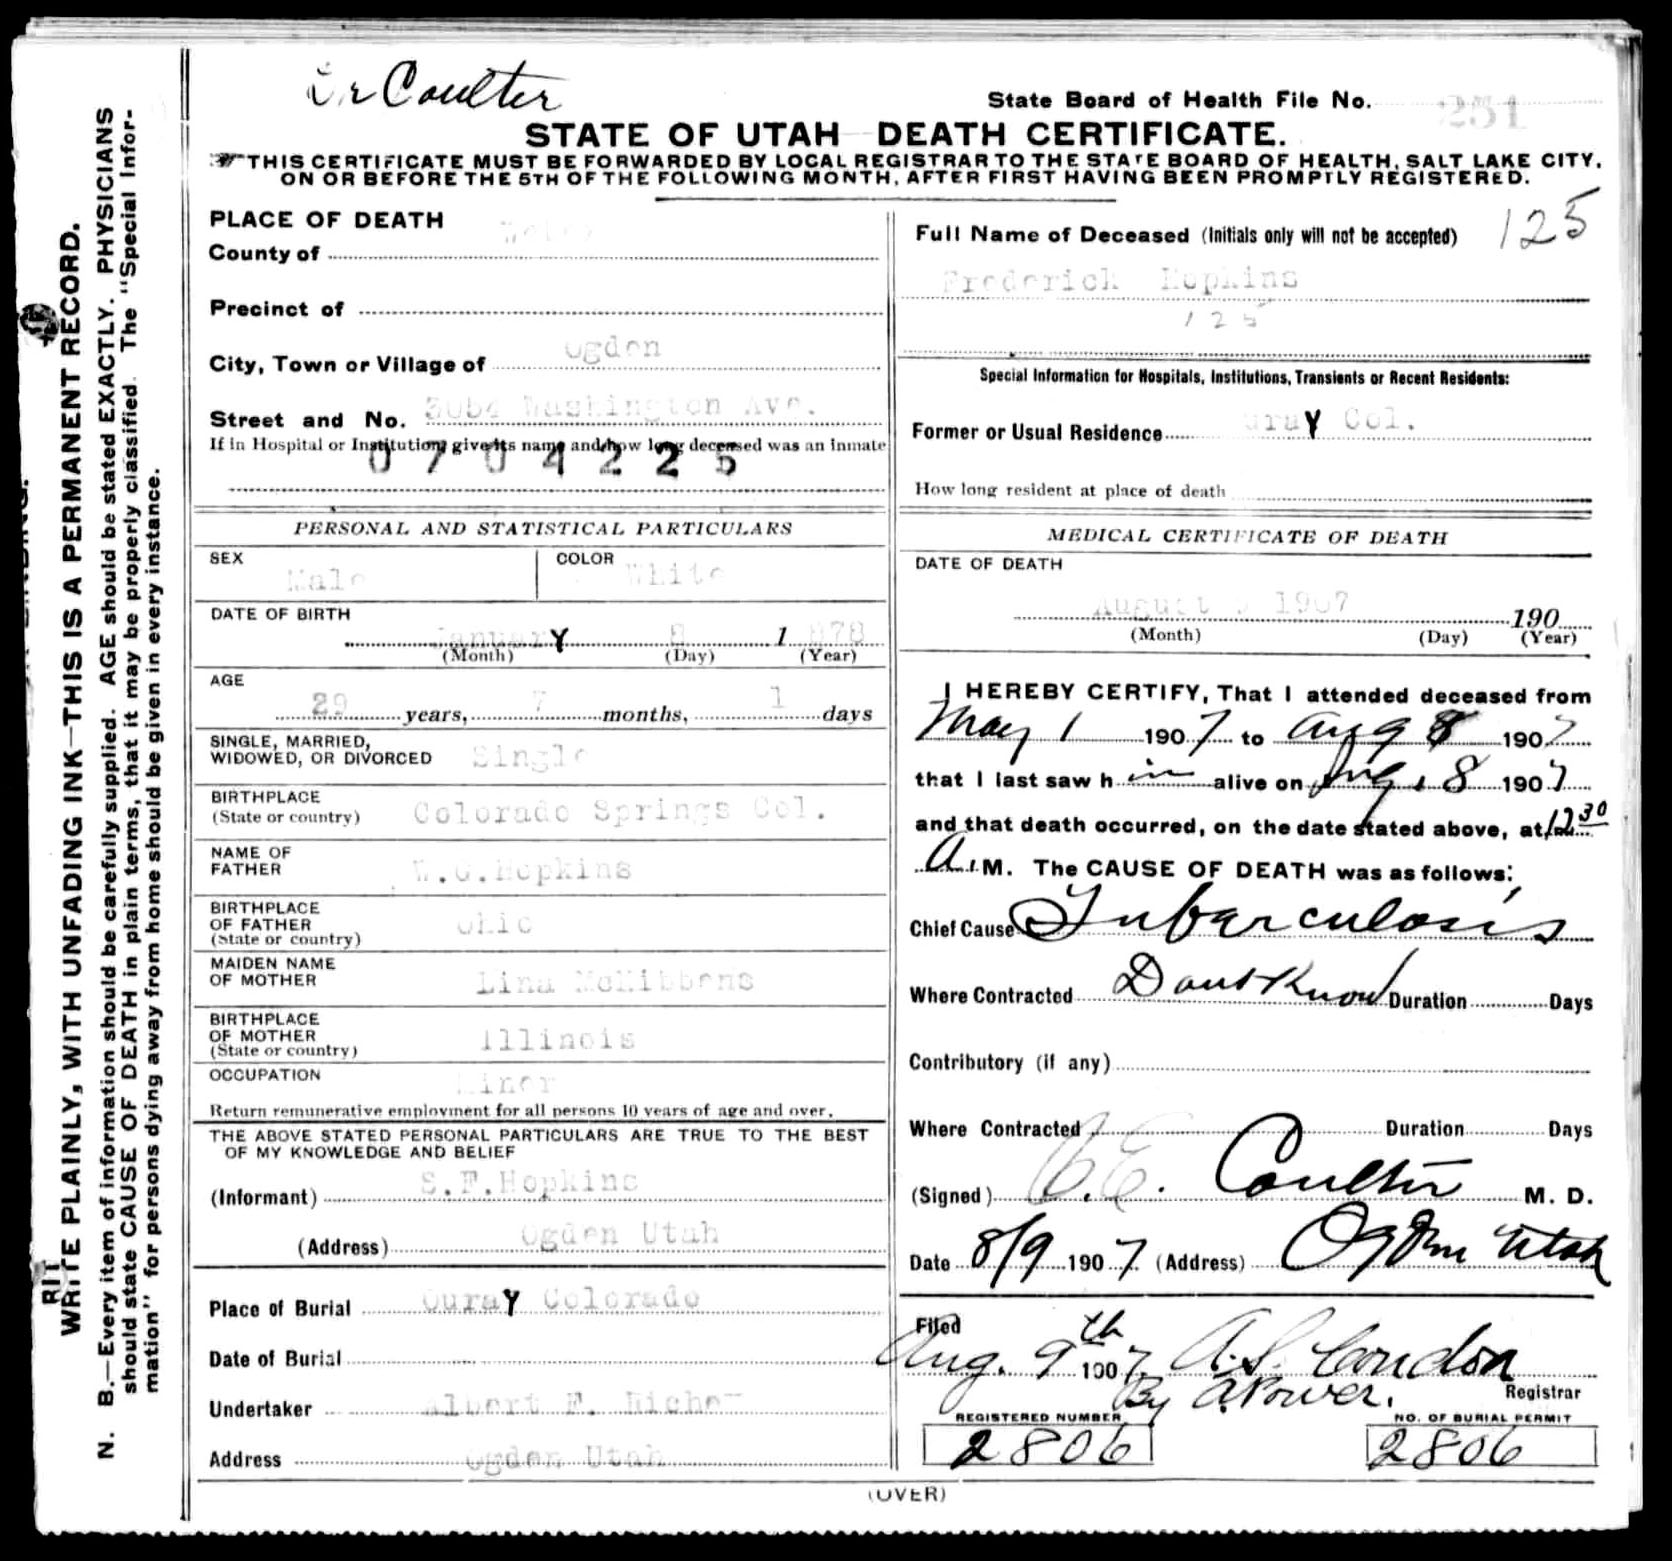 Dr Coulter
State Board of Health File No. 251
STATE OF UTAH—DEATH CERTIFICATE.
THIS CERTIFICATE MUST BE FORWARDED BY LOCAL REGISTRAR TO THE STATE BOARD OF HEALTH, SALT LAKE CITY,
ON OR BEFORE THE 5TH OF THE FOLLOWING MONTH, AFTER FIRST HAVING BEEN PROMPTLY REGISTERED.
PLACE OF DEATH
County of Weber
Precinct of
City, Town or Village of Ogden
Street and No. Washington Ave.
If in Hospital or Institution, give its name and how long deceased was an inmate
0704225
PERSONAL AND STATISTICAL PARTICULARS
SEX Male COLOR White
DATE OF BIRTH
January 8 1 878
(Month) (Day) (Year)
AGE
29 years, 7 months, 1 days
SINGLE, MARRIED,
WIDOWED, OR DIVORCED Single
BIRTHPLACE
(State or country) Colorado Springs Col.
NAME OF
FATHER W.G.Hopkins
BIRTHPLACE
OF FATHER Ohio
(State or country)
MAIDEN NAME
OF MOTHER Lina McKibbens
BIRTHPLACE
OF MOTHER Illinois
(State or country)
OCCUPATION Miner
Return remunerative employment for all persons 10 years of age and over.
THE ABOVE STATED PERSONAL PARTICULARS ARE TRUE TO THE BEST
OF MY KNOWLEDGE AND BELIEF
(Informant) S.F.Hopkins
(Address) Ogden Utah
Place of Burial Ouray Colorado
Date of Burial
Undertaker Albert F.
Address Ogden Utah
125
Full Name of Deceased (Initials only will not be accepted)
Frederick Hopkins
125
Special Information for Hospitals, Institutions, Transients or Recent Residents:
Former or Usual Residence Ouray Col.
How long resident at place of death
MEDICAL CERTIFICATE OF DEATH
DATE OF DEATH
August 9 1907 190
(Month) (Day) (Year)
I HEREBY CERTIFY, That I attended deceased from
May 1 1907 to Aug 8 1907
that I last saw h im alive on Aug. 8 1907
and that death occurred, on the date stated above, at 12 30
A. M. The CAUSE OF DEATH was as follows:
Chief Cause Tubarculosis
Where Contracted Dont Know Duration Days
Contributory (if any)
Where Contracted Duration Days
(Signed) C.E. Coulter M. D.
Date 8/9 1907 (Address) Ogden Utah
Filed
Aug. 9th 1907 A.S. Condon
By A Power. Registrar
REGISTERED NUMBER NO. OF BURIAL PERMIT
2806 2806
(OVER)
RIT
WRITE PLAINLY, WITH UNFADING INK—THIS IS A PERMANENT RECORD.
N. B.—Every item of information should be carefully supplied. AGE should be stated EXACTLY. PHYSICIANS
should state CAUSE OF DEATH in plain terms, that it may be properly classified. The "Special Infor-
mation" for persons dying away from home should be given in every instance.